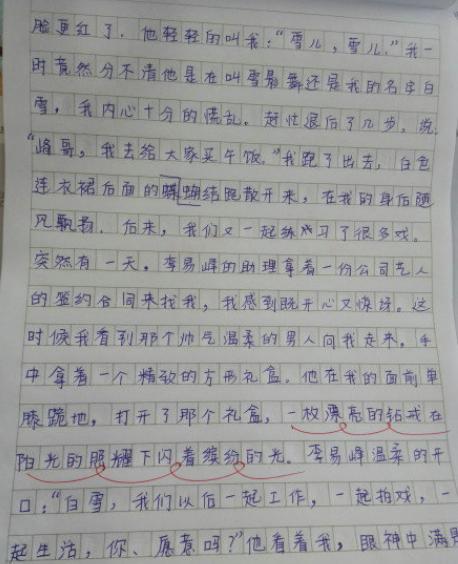 脸更红了。他轻轻的叫我:“雪儿,雪儿。”我一
时竟然分不清他是在叫雪晨舞还是我的名字白
雪,我内心十分的慌乱。赶忙退后了几步,说:
“峰哥,我去给大家买午饭。”我跑了出去,白色
连衣裙后面的蝴蝶结跑散开来,在我的身后随
风飘扬。后来,我们又一起练习了很多戏。
突然有一天,李易峰的助理拿着一份公司艺人
的签约合同来找我,我感到既开心又惊讶。这
时候我看到那个帅气温柔的男人向我走来,手
中拿着一个精致的方形礼盒。他在我的面前单
膝跪地,打开了那个礼盒,一枚漂亮的钻戒在
阳光的照耀下闪着缤纷的光。李易峰温柔的开
口:“白雪,我们以后一起工作,一起拍戏,一
起生活,你、愿意吗?”他看着我,眼神中满是